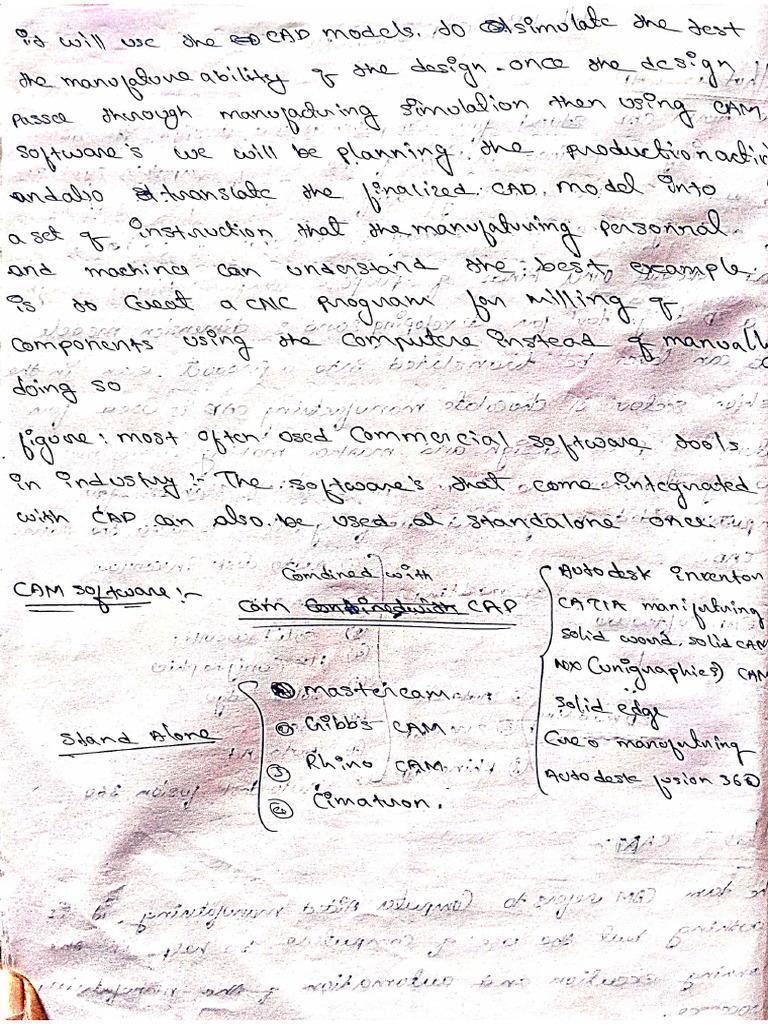 it will use the CAD models. to simulate the test
the manufature ability of the design. once the design
passee through manufacturing simulation then using CAM
software's we will be planning the production
and also translate the finalized CAD model into
a set of instruction that the manufaturing personnal
and machines can understand the best example
is to Creat a CNC program for milling of
components using the Computere instead of manuall
doing so
figure: most often used Commercial software tools
in industry :- The software's that come integrated
with CAD can also be used at standalone ones.
CAM software :-
Comdined with
Com CAD
Autodesk inventor
CATIA
solid word, solid CAM
NX (unigraphics) CAM
Solid edge
Creo manufuturing
Autodesk fusion 360
Stand Alone
① mastercam
② Gibbs CAM
③ Rhino CAM
④ Cimatron.